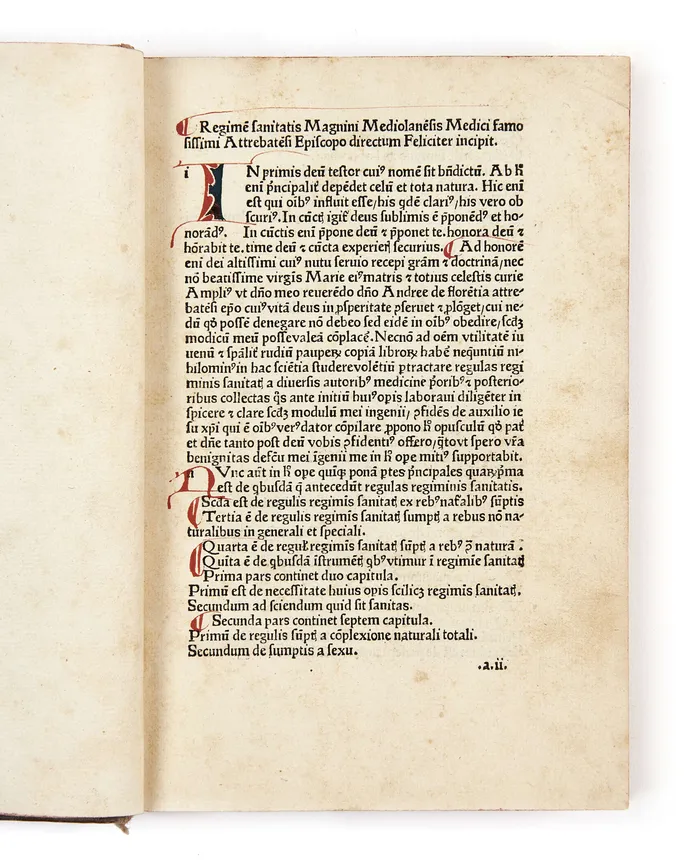 Regimē ſanitatis Magnini Mediolanēſis Medici famo
ſiſſimi Attrebatēſi Epiſcopo directum Feliciter incipit.
i IN primis deū teſtor cuiꝰ nomē ſit bn̄dictū. Ab
eni pͥncipalit̄ depēdet celū et tota natura. Hic enī
est qui oībꝰ influit eſſe/his qdē clariꝰ/his vero ob
ſcuriꝰ. In cūctꝭ igit̄ deus ſublimis ē p̄ponēdꝰ et ho-
norādꝰ. In cūctis enī p̄pone deū ⁊ p̄ponet te. honora deū ⁊
hōrabit te. time deū ⁊ cūcta experierꝭ ſecurius. Ad honorē
eni dei altiſſimi cuiꝰ nutu ſeruio recepi gr̄am ⁊ doctrinā/nec
nō beatiſſime virgīs Marie eiꝰ matris ⁊ totius celeſtis curie
Ampliꝰ vt dn̄o meo reuerēdo dn̄o Andree de florētia attre-
batēſi ep̄o cuiꝰ vitā deus in ꝓſperitate pſeruet ⁊ ꝓlōget/cui ne-
dū qd̄ poſſē denegare nō debeo ſed eidē in oībꝰ obedire/ſcd̄ꝫ
modicū meū poſſe valeā cōplacē. Necnō ad oēm vtilitatē iu
uenū ⁊ ſpālit̄ rudiū pauperꝝ copiā librorꝝ habē nequētiū ni-
hilominꝰ in hac ſciētia ſtudere volētiū ptractare regulas regi
minis ſanitatꝭ a diuerſis autoribꝰ medicine p̄oribꝰ ⁊ poſterio-
ribus collectas q̄s ante initiū huiꝰ opis laboraui diligēter in
ſpicere ⁊ clare ſcd̄ꝫ modulū mei ingenii/ ꝯfidēs de auxilio ie
ſu xp̄i qui ē oībꝰ verꝰ dator cōpilare ꝓpono opuſculū qd̄
et dn̄e tanto poſt deū vobis ꝯfidentiꝰ offero/ ſpero vr̄a
benignitas defc̄u mei īgenii me in ope mitiꝰ ſupportabit.
n NVnc aūt in ope quīqꝫ ponā ptes p̄ncipales quarꝝ pͥma
est de qbuſdā q̄ antecedūt regulas regiminis ſanitatis.
Scd̄a est de regulis regimīs ſanitatꝭ ex rebꝰ nat̄alibꝰ ſūptis
Tertia ē de regulis regimīs ſanitatꝭ ſumptꝭ a rebus nō na-
turalibus in generali et ſpeciali.
Quarta ē de regul̄ regimīs ſanitatꝭ ſūptꝭ a rebꝰ naturā.
Quīta ē de qbuſdā īſtrumētꝭ qbꝰ vtimur ī regimīe ſanitatꝭ
Prima pars continet duo capitula.
Primū est de neceſſitate huius opis ſcilicꝫ regimīs ſanitatꝭ.
Secundum ad ſciendum quid ſit ſanitas.
Secunda pars continet ſeptem capitula.
Primū de regulis ſūptꝭ a cōplexione naturali totali.
Secundum de ſumptis a ſexu.
.a.ii.